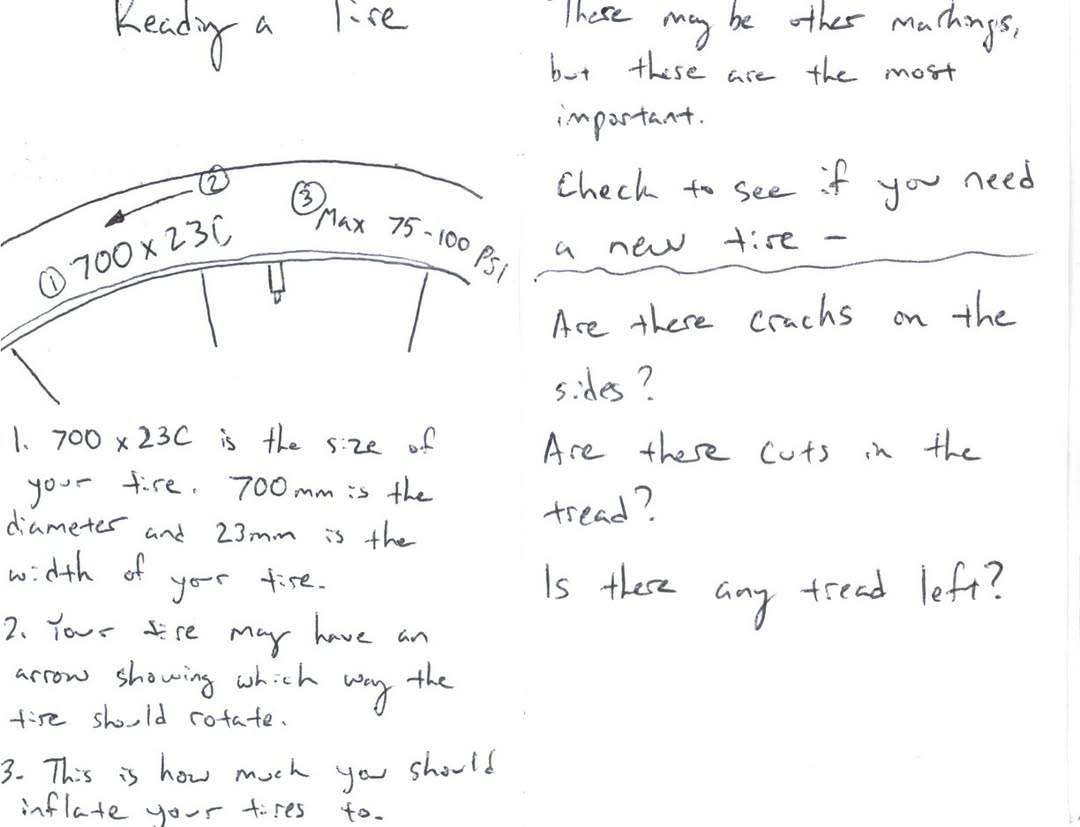 Reading a Tire
② 
③
① 700 x 23C
Max 75-100 PSI
1. 700 x 23C is the size of
your tire. 700mm is the
diameter and 23mm is the
width of your tire.
2. Your tire may have an
arrow showing which way the
tire should rotate.
3- This is how much you should
inflate your tires to.
There may be other markings,
but these are the most
important.
Check to see if you need
a new tire -
Are there cracks on the
sides?
Are there cuts in the
tread?
Is there any tread left?